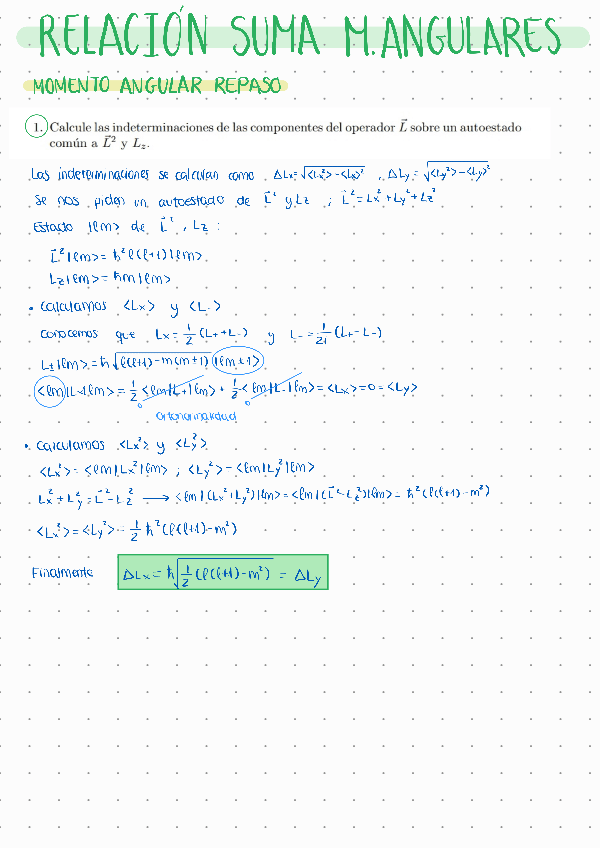 RELACIÓN SUMA M.ANGULARES
MOMENTO ANGULAR REPASO
1. Calcule las indeterminaciones de las componentes del operador L⃗ sobre un autoestado
común a L⃗² y L_z.
Las indeterminaciones se calculan como ΔLx=√(<Lx²>-<Lx>²) , ΔLy=√(<Ly²>-<Ly>²)
Se nos piden un autoestado de L⃗² y Lz ; L⃗²=Lx²+Ly²+Lz²
Estado |lm> de L⃗², Lz :
L⃗²|lm>=ħ²l(l+1)|lm>
Lz|lm>=ħm|lm>
• Calculamos <Lx> y <L->
Conocemos que Lx=1/2(L++L-) y L-=1/2i(L+-L-)
L±|lm>=ħ√(l(l+1)-m(m±1))|lm±1>
<lm|Lx|lm>=1/2<lm|L+|lm>+1/2<lm|L-|lm>=<Lx>=0=<Ly>
0 0
ortonormalidad
• Calculamos <Lx²> y <Ly²>
<Lx²>=<lm|Lx²|lm> ; <Ly²>=<lm|Ly²|lm>
Lx²+Ly²=L⃗²-Lz² ⟶ <lm|(Lx²+Ly²)|lm>=<lm|(L⃗²-Lz²)|lm>=ħ²(l(l+1)-m²)
<Lx²>=<Ly²>=1/2ħ²(l(l+1)-m²)
Finalmente ΔLx=ħ√(1/2(l(l+1)-m²))=ΔLy